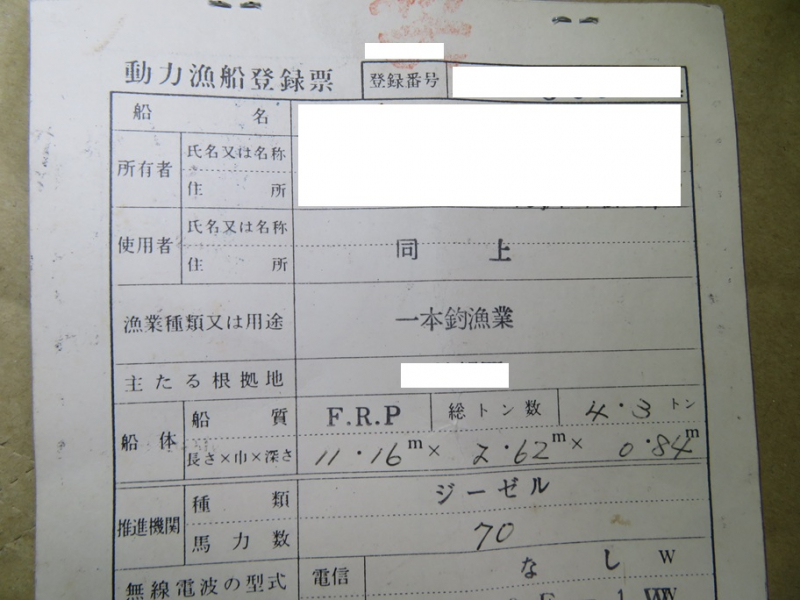 動力漁船登録票 登録番号
船名
所有者 氏名又は名称
住所
使用者 氏名又は名称
住所
同上
漁業種類又は用途 一本釣漁業
主たる根拠地
船体 船質 F.R.P 総トン数 4.3トン
長さ×巾×深さ 11.16m× 2.62m× 0.84m
推進機関 種類 ジーゼル
馬力数 70
無線電波の型式 電信 なし W